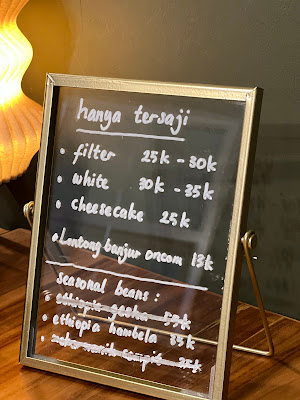 hanya tersaji
• filter 25k - 30k
• white 30k - 35k
• cheesecake 25k
• Lontong banjur oncom 13k
seasonal beans :
• ethiopia gesha 55k
• ethiopia hambela 35k
• 35k